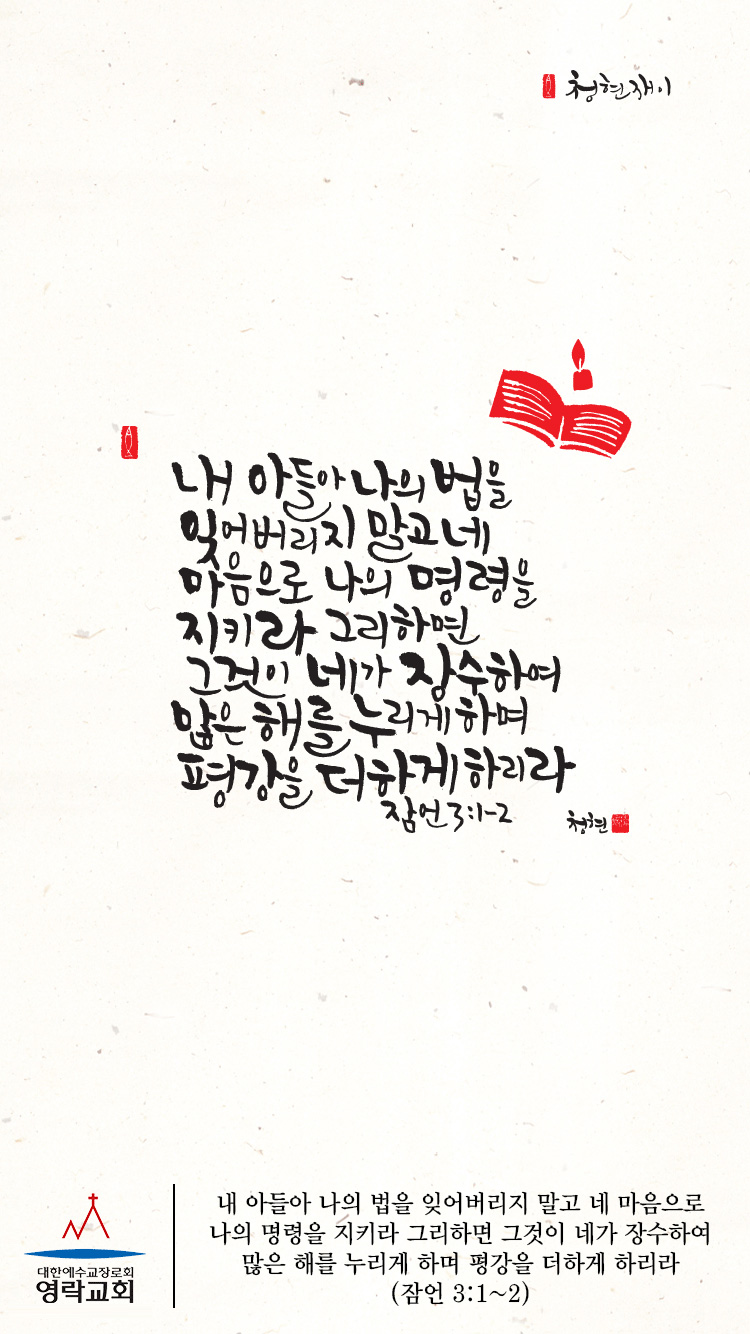 청현재이
내 아들아 나의 법을
잊어버리지 말고 네
마음으로 나의 명령을
지키라 그리하면
그것이 네가 장수하여
많은 해를 누리게 하며
평강을 더하게 하리라
잠언 3:1-2
청현
대한예수교장로회
영락교회
내 아들아 나의 법을 잊어버리지 말고 네 마음으로
나의 명령을 지키라 그리하면 그것이 네가 장수하여
많은 해를 누리게 하며 평강을 더하게 하리라
(잠언 3:1~2)